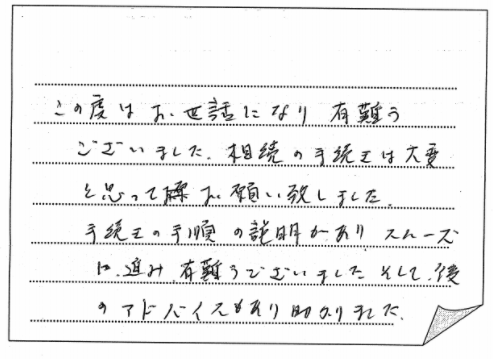 この度はお世話になり 有難う
ございました。相続の手続きは大変
と思って お願い致しました。
手続きの手順の説明があり スムーズ
に進み、有難うございました そして、後
のアドバイスもあり助かりました。